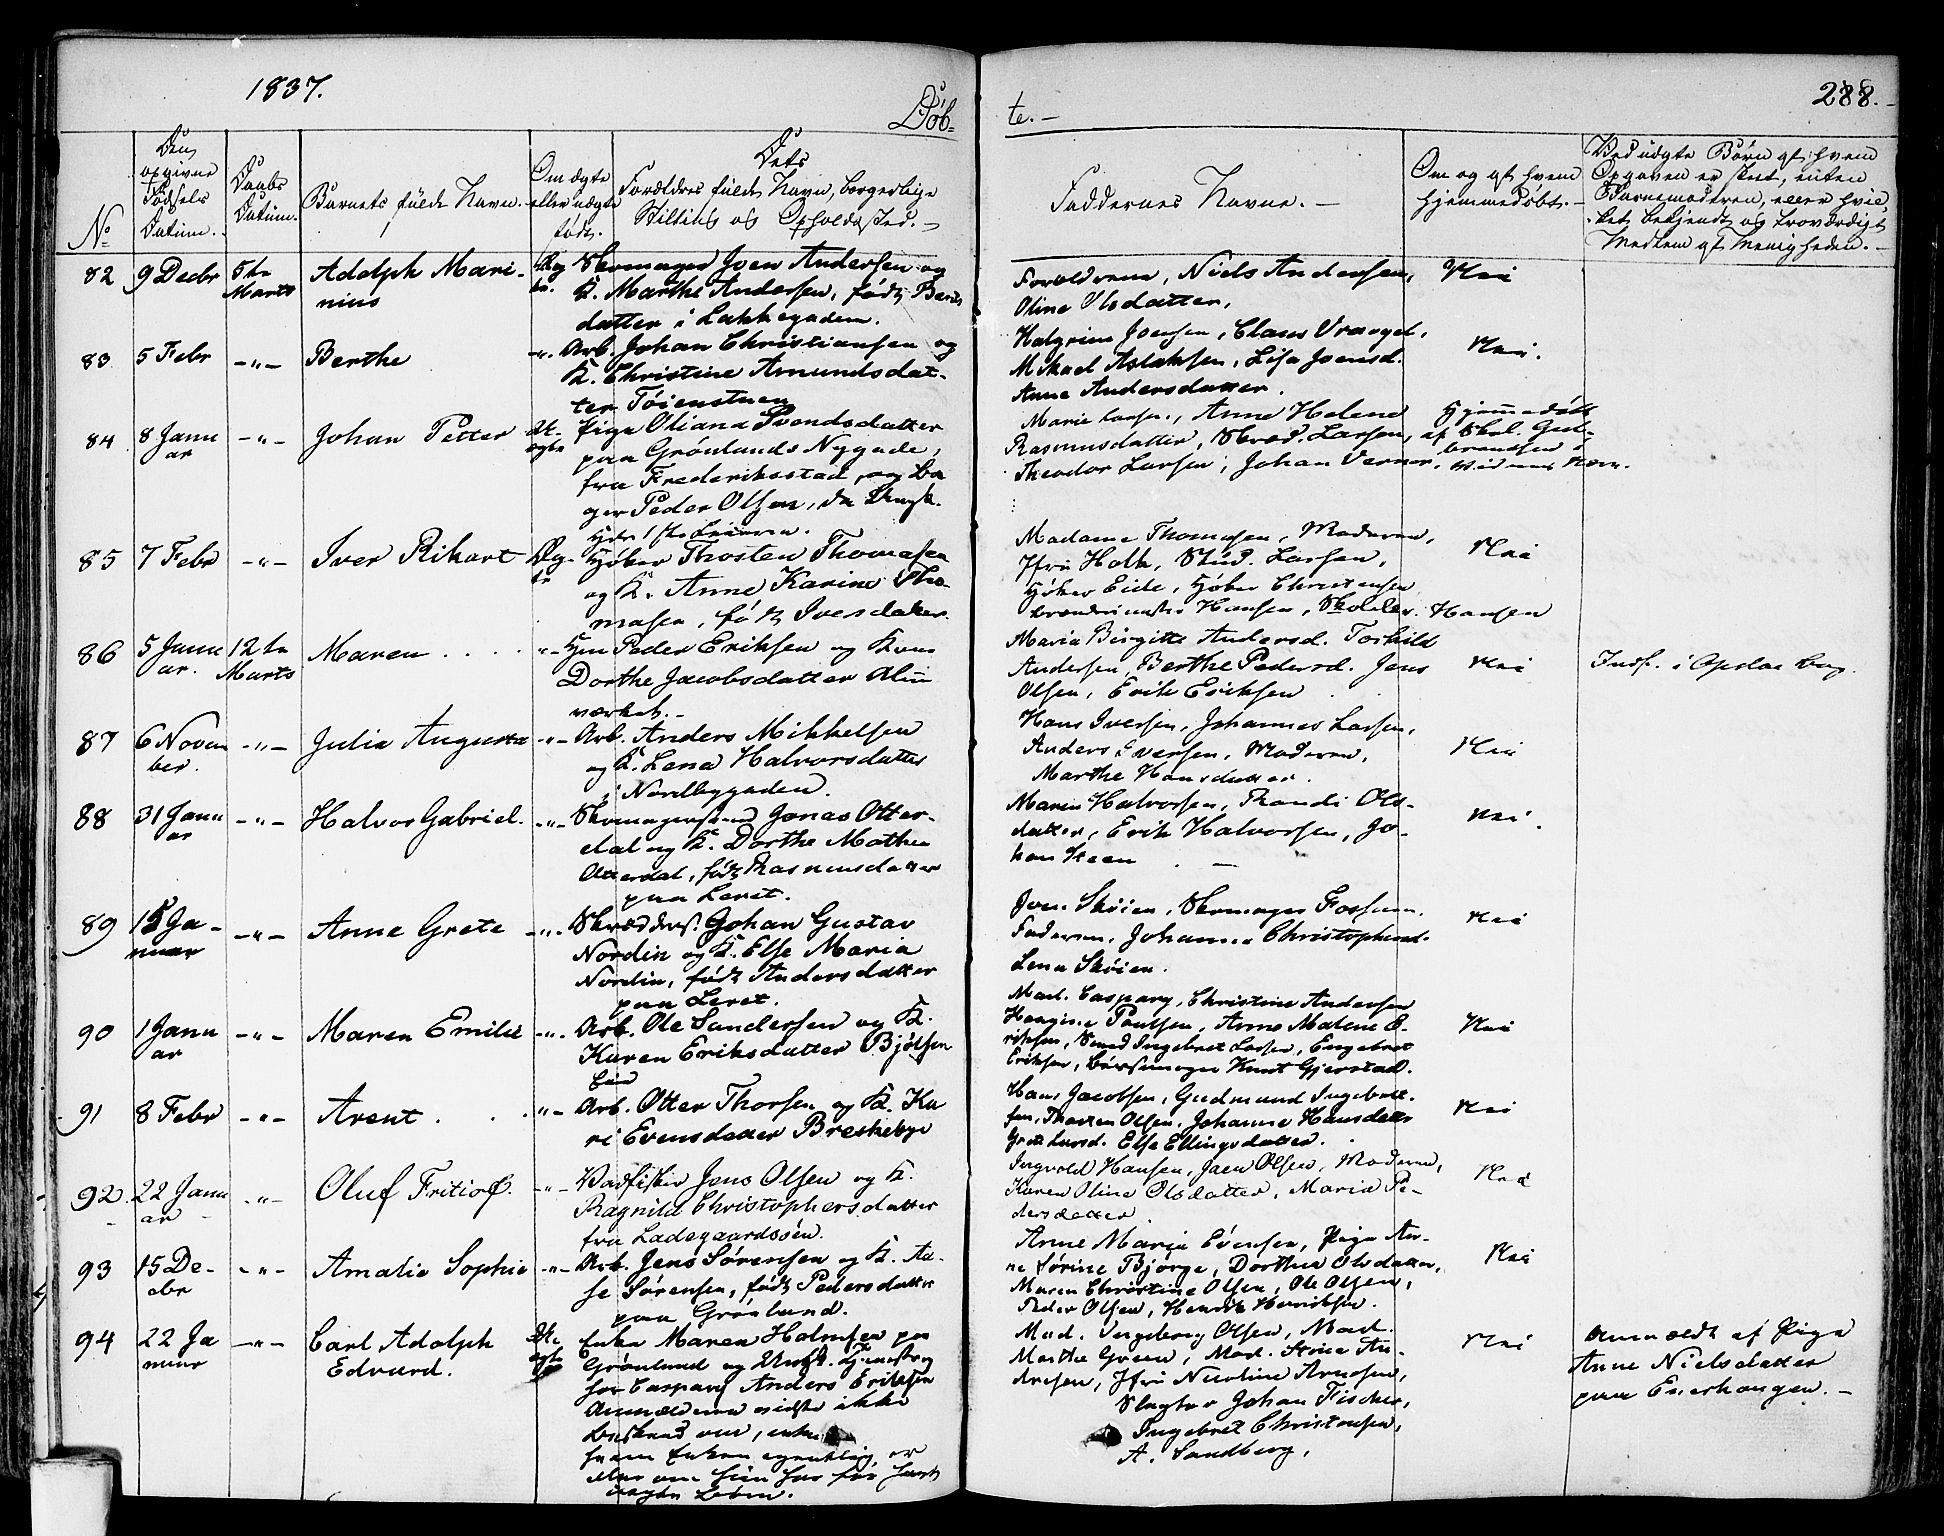 1837.
Døb-
te. -
288.
No
Den opgivne Fødsels Datum.
Daabs Datum.
Barnets fulde Navn.
Om ægte eller uægte født.
Dets Forældres fulde Navn, borgerlige Stilling og Opholdssted. -
Faddernes Navne. -
Om og af hvem hjemmedøbt. -
Ved uægte Børn af hvem Opgaven er skeet, enten Barnemoderen, eller hvilket bekjendt og troværdigt Medlem af Menigheden. -
82 9 Decbr 5te Marts Adolph Marinius Ægte. Skomager Joen Andersen og
K. Marthe Andersen, født
datter i Lakkegaden.
Forældrene, Niels Andersen,
Oline Olsdatter,
Nei
83 5 Febr -"- Berthe -"- Arb. Johan Christiansen og
K. Christine Amundsdat-
ter Tøienstuen
Halgrim Joensen, Claus Vrangel,
Mikael Aslaksen, Lisa Joensd.
Anne Andersdatter.
Nei.
84 8 Januar -"- Johan Petter Uægte Pige Oliana Svendsdatter
paa Grønlands Nygade,
fra Frederiksstad, og Ba
ger Peder Olsen,
Marie Larsn., Anne Helene
Rasmusdatter, Skræd. Larsen,
Theodor Larsen, Johan Verner.
Hjemmedøbt
af Skol. Gul-
brandsen
85 7 Febr -"- Iver Rikart Ægte Høker Thosten Thomasen
og K. Anne Karine Tho-
masen, født Iversdatter.
Madame Thomasen, Moderen,
Jfru Holk, Stud. Larsen,
Høker Eide, Høker Christensen
Hansen, Skolelær. Hansen
Nei
86 5 Januar. 12te Marts Maren . . . . -"- Peder Eriksen og Kone
Dorthe Jacobsdatter Alun
værket. -
Maria Birgitte Andersd. Torkild
Andersen, Berthe Pedersd. Jens
Olsen, Erik Eriksen
Nei
Indf. i Opsloe
87 6 November. -"- Julia Augusta -"- Arb. Anders Mikkelsen
og K. Lena Halvorsdatter
i Nordbygaden.
Hans Iversen, Johannes Larsen,
Anders Iversen, Moderen,
Marthe Hansdatter.
Nei
88 31 Januar -"- Halvor Gabriel. -"- Skomagersvend Jonas Otter-
dal og K. Dorthe Mathea
Otterdal, født Rasmusdatter
paa Leret.
Maren Halvorsen, Randi Ols-
datter, Erik Halvorsen, Jo-
han Steen . -
Nei.
89 15 Januar -"- Anne Grete -"- Skrædders. Johan Gustav
Nordin og K. Else Maria
Nordin, født Andersdatter
paa Leret.
Joen Skøien, Skomager Fossum.
Faderen, Johanne Christophersd.
Lena Skøien.
Nei
90 1 Januar -"- Maren Emilie -"- Arb. Ole Sandersen og K.
Karen Eriksdatter Bjølsen
Mad. Caspary, Christine Andersen
Poulsen, Anne Malene E-
riksen, Smed Ingebret Larsen, Engebret
Eriksen, Børsemager Knut Gjerstad.
Nei
91 8 Febr -"- Arent . . . -"- Arb. Otter Thorsen og K. Ka
ri Evensdatter Breskebye
Hans Jacobsen, Gudmund Ingebret-
sen, Thosten Olsen, Johanne Hansdatter
Larsd. Else Ellingsdatter.
Nei
92. 22 Januar -"- Oluf Fritiof. -"- Jens Olsen og K.
Ragnild Christophersdatter
fra Ladegaardsøen.
Ingvold Hansen, Joen Olsen, Moderen,
Karen Oline Olsdatter, Maria Pe-
dersdatter
Nei
93 15 Decbr -"- Amalie Sophie -"- Arb. Jens Sørensen og K. Aa-
se Sørensen, født Pedersdatter
paa Grønland.
Anne Maria Evensen, Pige An-
ne Sørine Bjørge, Dorthea Olsdatter,
Maren Christine Olsen, Ole Olsen,
Peder Olsen, Henrik Henriksen.
Nei
94 22 Januar -"- Carl Adolph
Edvard. Uægte Enke Maren Holmsen paa
Grønland og
Caspary Anders Eriksen
Anmælderen vidste ikke
Beskeed om,
hvem Enken egentlig er
eller om hun har før havt
uægte Børn.
Mad. Ingeborg Olsen, Mad.
Marthe Green, Mad. Stine An-
dresen, Jfru Nicoline Arnesen,
Slagter Johan Fischer,
Ingebret Christensen,
A. Sandberg,
Nei
Anmældt af Pige
Anne Nielsdatter
paa Enerhougen. -